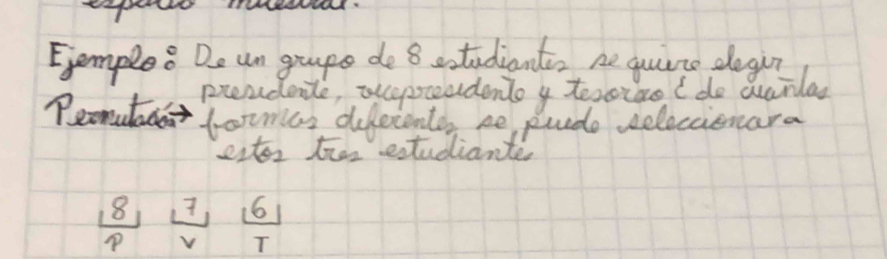 espacio muestral.
Ejemplo: De un grupo de 8 estudiantes se quiere elegir
presidente, vicepresidente y tesorero ¿ de cuantas
Permutación→ formas diferentes se puede seleccionar a
estos tres estudiantes
8 7 6
P V T